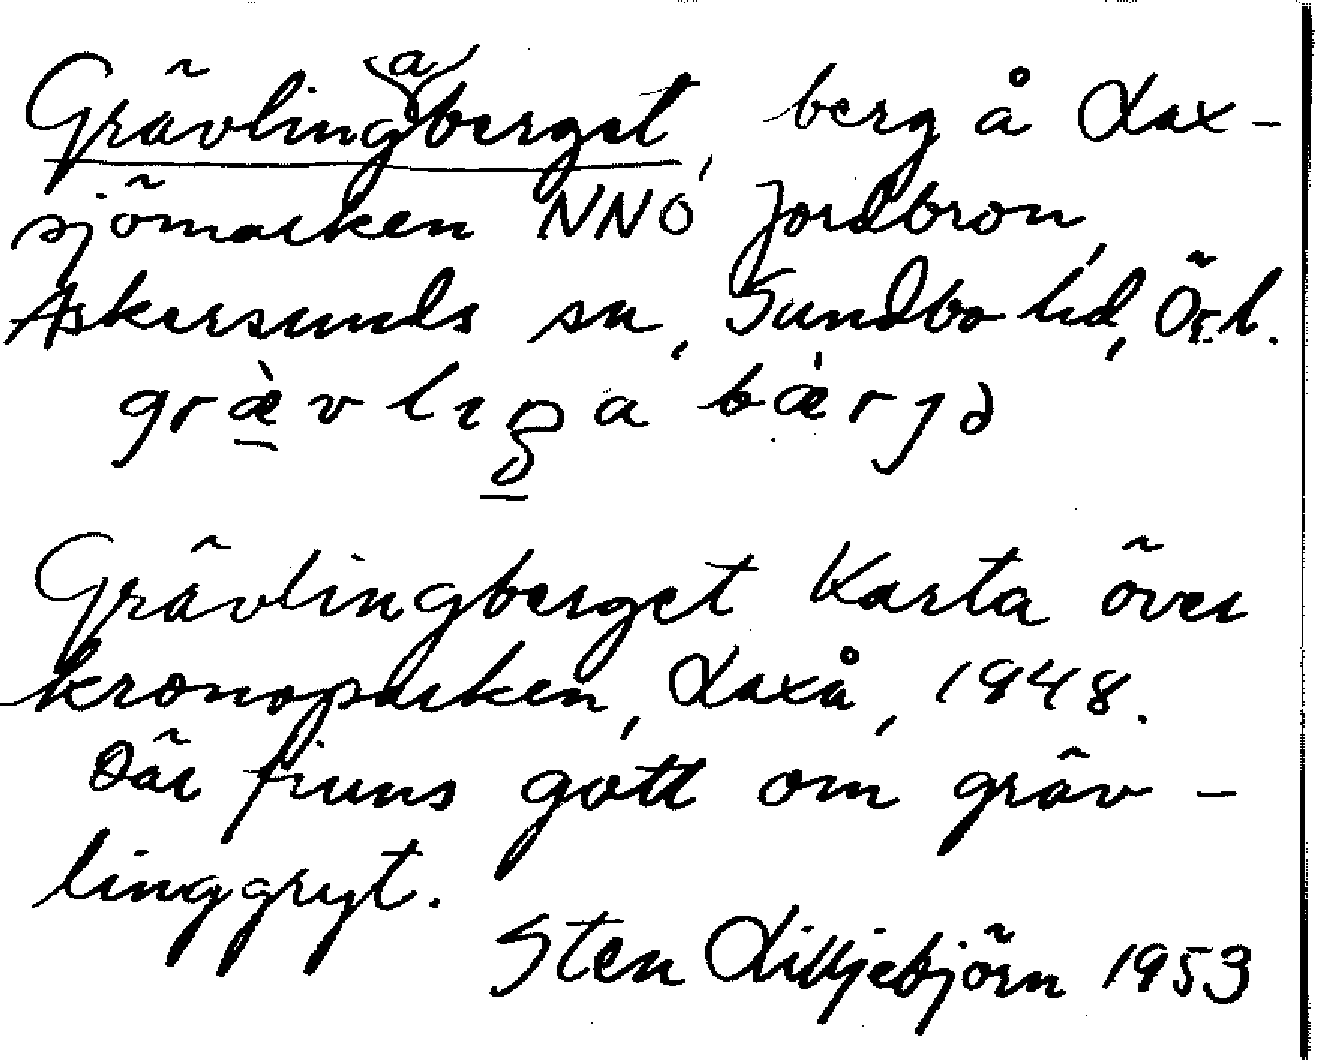 Grävlingaberget, berg å Lax-
sjömarken NNÖ Jordbron,
Askersunds sn, Sundbo hd, Ör. l.
græ̀vlıŋa bæ̀rjə
Grävlingberget Karta över
kronoparken, Laxå, 1948.
Där finns gott om gräv-
linggryt.
Sten Lilljebjörn 1953